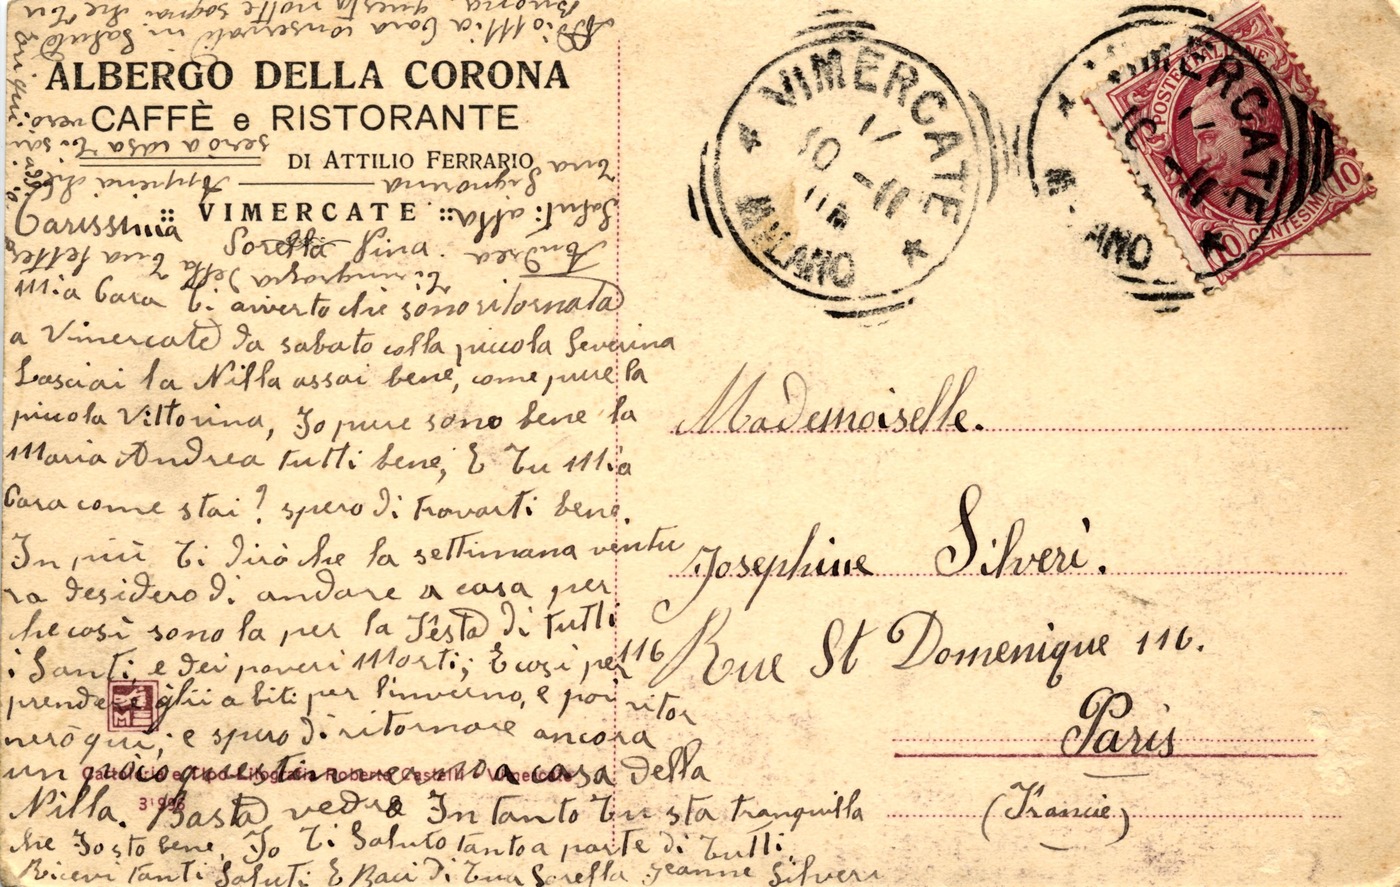 ALBERGO DELLA CORONA
CAFFÈ e RISTORANTE
DI ATTILIO FERRARIO
VIMERCATE
Carissima
Sorella Nina
Mia Cara Ti averto che sono ritornata
a Vimercate da sabato colla piccola Severina
Lasciai la Nilla assai bene, come pure la
piccola Vittorina, Io pure sono bene la
Maria Andrea tutti bene, E Tu Mia
Cara come stai? spero di trovarti bene.
In più Ti dirò che la settimana ventu
ra desidero di andare a casa per
che così sono la per la Festa di tutti
i Santi, e dei poveri Morti; E così per
prendere glii abiti per l'inverno, e poi ritor
nerò qui, e spero di ritornare ancora
un poco questi a casa della
Nilla. Basta vedrò In tanto Tu sta tranquilla
che Io sto bene, Io Ti Saluto tanto a parte di Tutti,
Ricevi tanti Saluti E Baci di Tua Sorella Jeanne Silveri
Ti ringrazia della Tua lettera
Andrea
Saluti alla
Tua Signorina
Appena che
sarò a casa Ti scri
verò
Addio Mia Cara conservati in Salute
Buona questa notte sognai che Tu
VIMERCATE
17
10 - 11
MILANO
VIMERCATE
MILANO
POSTE ITALIANE
10 CENTESIMI 10
Mademoiselle.
Josephine Silveri.
116 Rue St Domenique 116.
Paris
(Francie)
Cartoleria e Tipo-Litografia Roberto Castelli - Vimercate